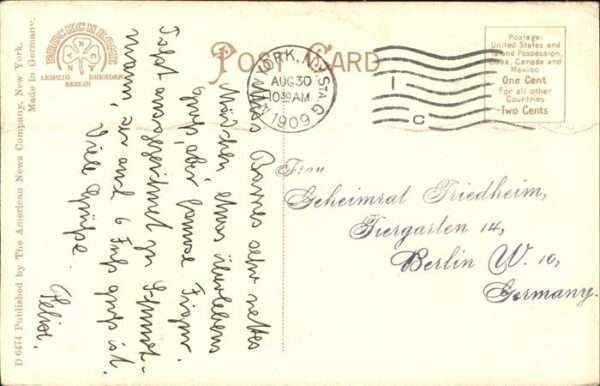 POST CARD
LEIPZIG BERLIN DRESDEN
YORK, N.Y. STA. G
AUG 30
10 30 AM
1909
1
C
Postage:
United States and
Island Possession,
Cuba, Canada and
Mexico
One Cent
For all other
Countries
Two Cents
D 6474 Published by The American News Company, New York.
Made in Germany.
Miss Barnes sehr nettes
Mädchen, etwas überlebens
gross, aber famose Figur.
Passt ausgezeichnet zu
mann, der auch 6 Fuss gross ist.
Viele Grüsse.
Felix.
Frau
Geheimrat Friedheim,
Tiergarten 14,
Berlin W. 10,
Germany.